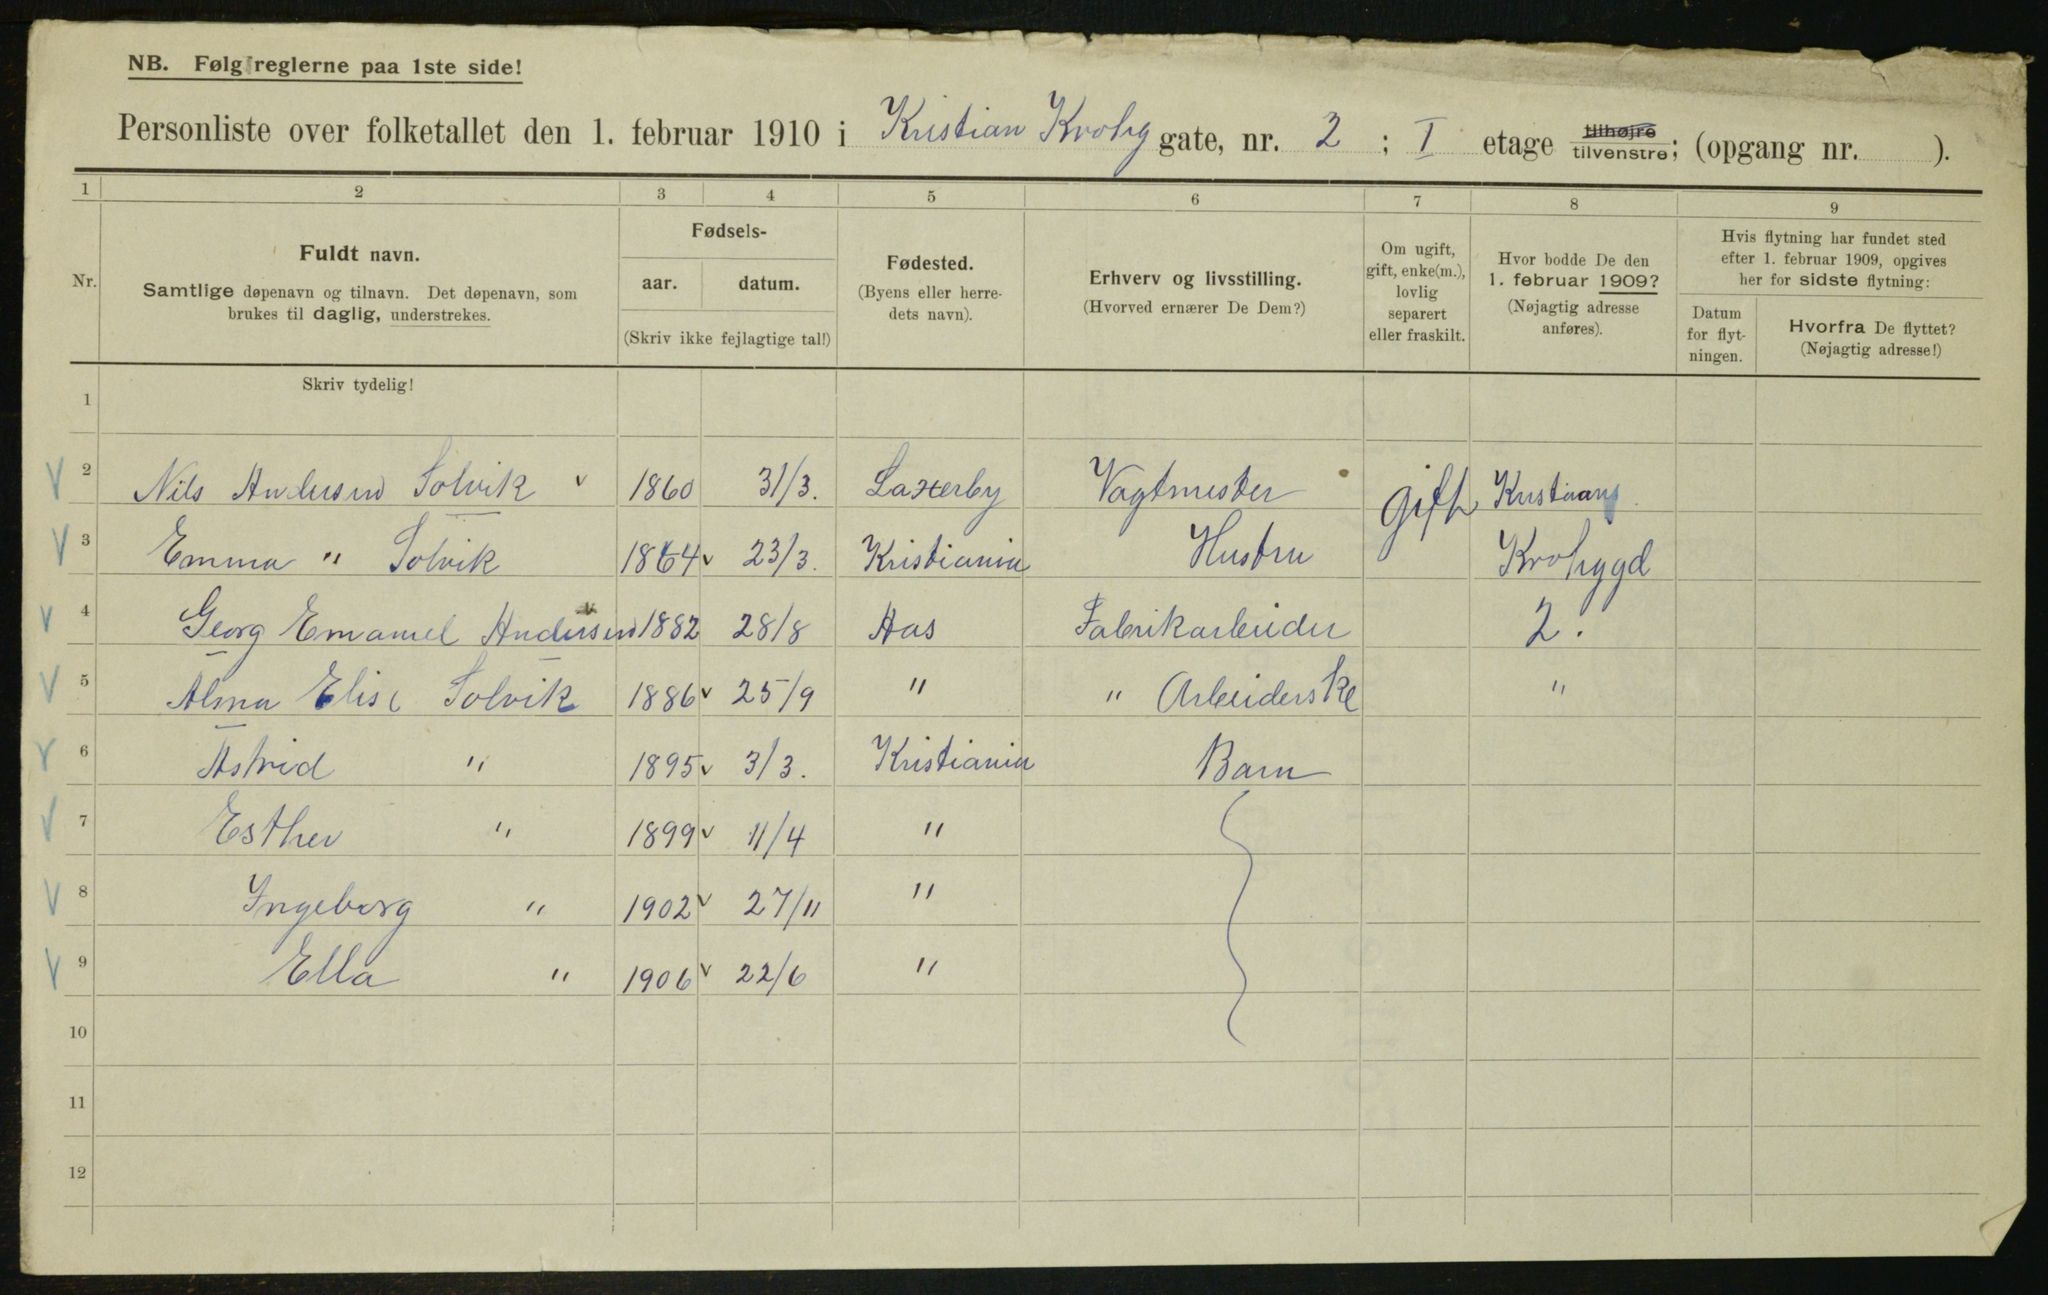 NB. Følg reglerne paa 1ste side!
Personliste over folketallet den 1. februar 1910 i Kristian Krohg gate, nr. 2 ; I etage tilhøjre tilvenstre; (opgang nr. ).
1 2 3 4 5 6 7 8 9
Nr.
Fuldt navn.
Samtlige døpenavn og tilnavn. Det døpenavn, som
brukes til daglig, understrekes.
Fødsels-
aar. datum.
(Skriv ikke fejlagtige tal!)
Fødested.
(Byens eller herre-
dets navn).
Erhverv og livsstilling.
(Hvorved ernærer De Dem?)
Om ugift,
gift, enke(m.),
lovlig
separert
eller fraskilt.
Hvor bodde De den
1. februar 1909?
(Nøjagtig adresse
anføres).
Hvis flytning har fundet sted
efter 1. februar 1909, opgives
her for sidste flytning:
Datum
for flyt-
ningen.
Hvorfra De flyttet?
(Nøjagtig adresse!)
Skriv tydelig!
1
2 Nils Andersen Solvik 1860 31/3. Vagtmester gift Kristians
3 Emma " Solvik 1864 23/3. Kristiania Hustru Krohggd
4 Georg Emanuel Andersen 1882 28/8 Aas Fabrikarbeider 2.
5 Alma Elise Solvik 1886 25/9 " " Arbeiderske "
6 Astrid " 1895 3/3. Kristiania Barn
7 Esther " 1899 11/4 "
8 Ingeborg " 1902 27/11 "
9 Ella " 1906 22/6 "
10
11
12